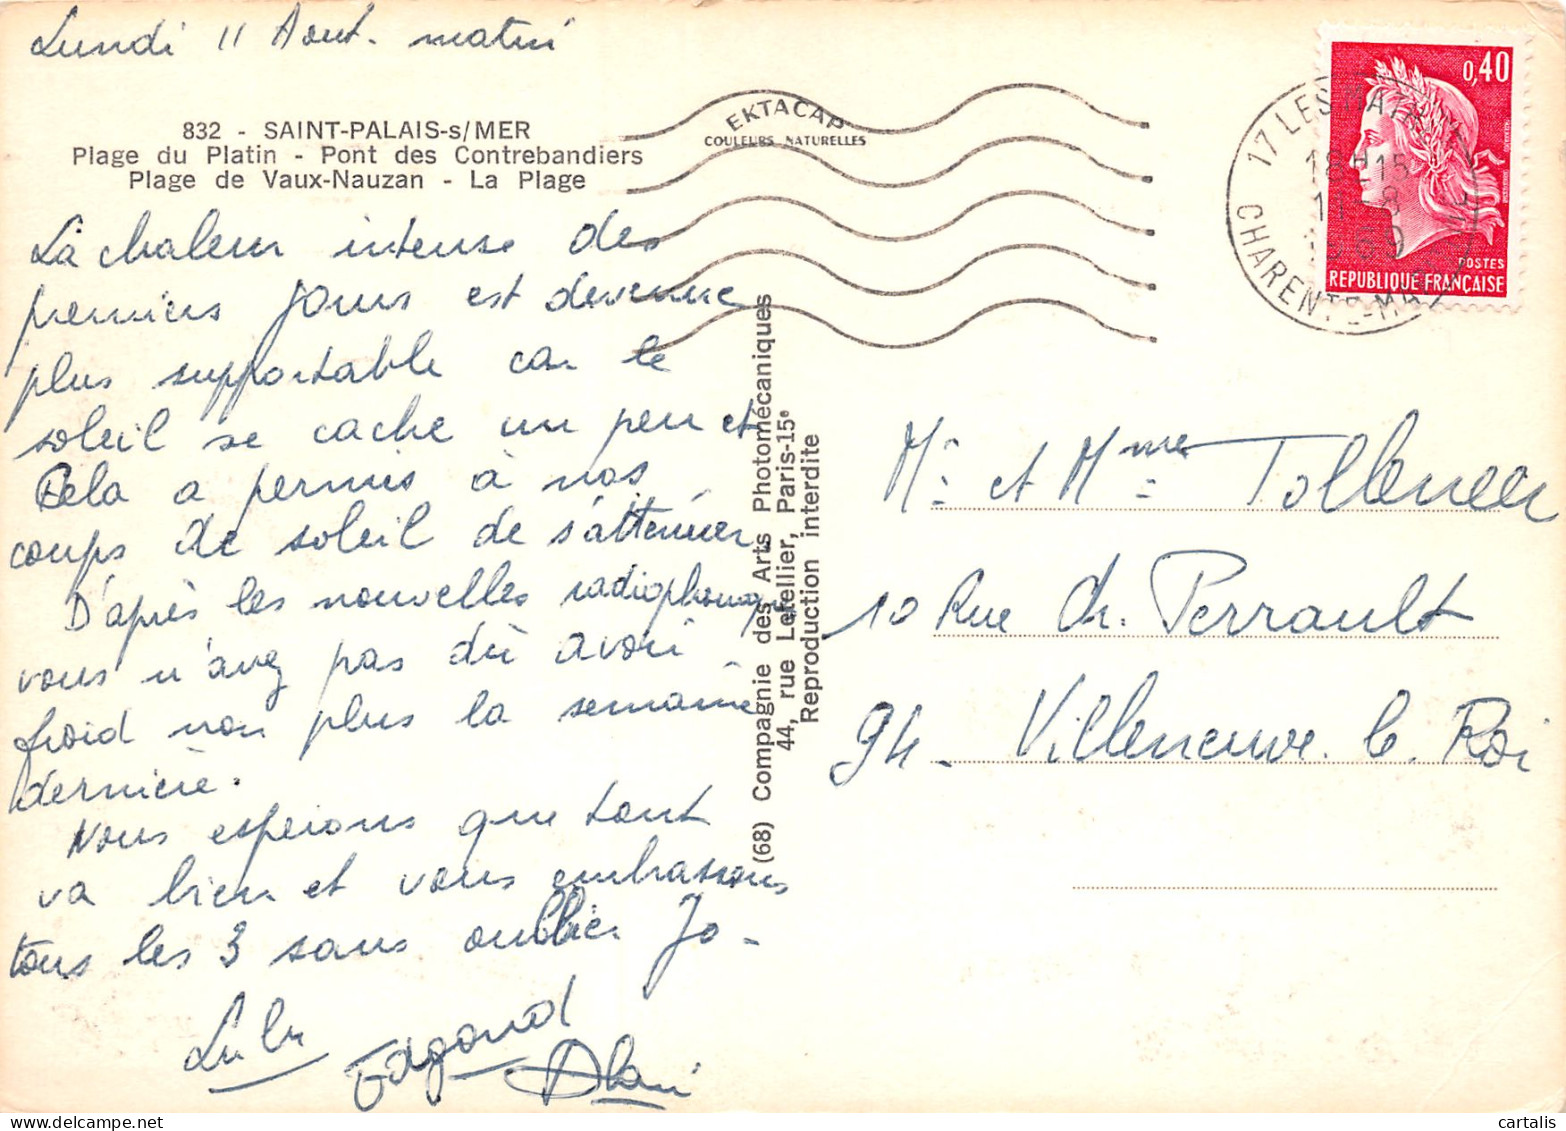 Lundi 11 Aout. matin
832 - SAINT-PALAIS-s/MER
Plage du Platin - Pont des Contrebandiers
Plage de Vaux-Nauzan - La Plage
EKTACAP
COULEURS NATURELLES
17 LES MATH
18H15
11-8
1969
CHARENTE-M
0,40
POSTES
REPUBLIQUE FRANÇAISE
La chaleur intense des
premiers jours est devenue
plus supportable car le
soleil se cache un peu et
Cela a permis à nos
coups de soleil de s'atténuer.
D'après les nouvelles
vous n'avez pas dû avoir
froid non plus la semaine
dernière.
Nous espérons que tout
va bien et vous embrassons
tous les 3 sans oublier Jo -
Lulu Edgard
Alain
(68) Compagnie des Arts Photomécaniques
44, rue Letellier, Paris-15e
Reproduction interdite
Mr et Mme Tolleneer
10 Rue Ch. Perrault
94 - Villeneuve. le Roi
cartalis